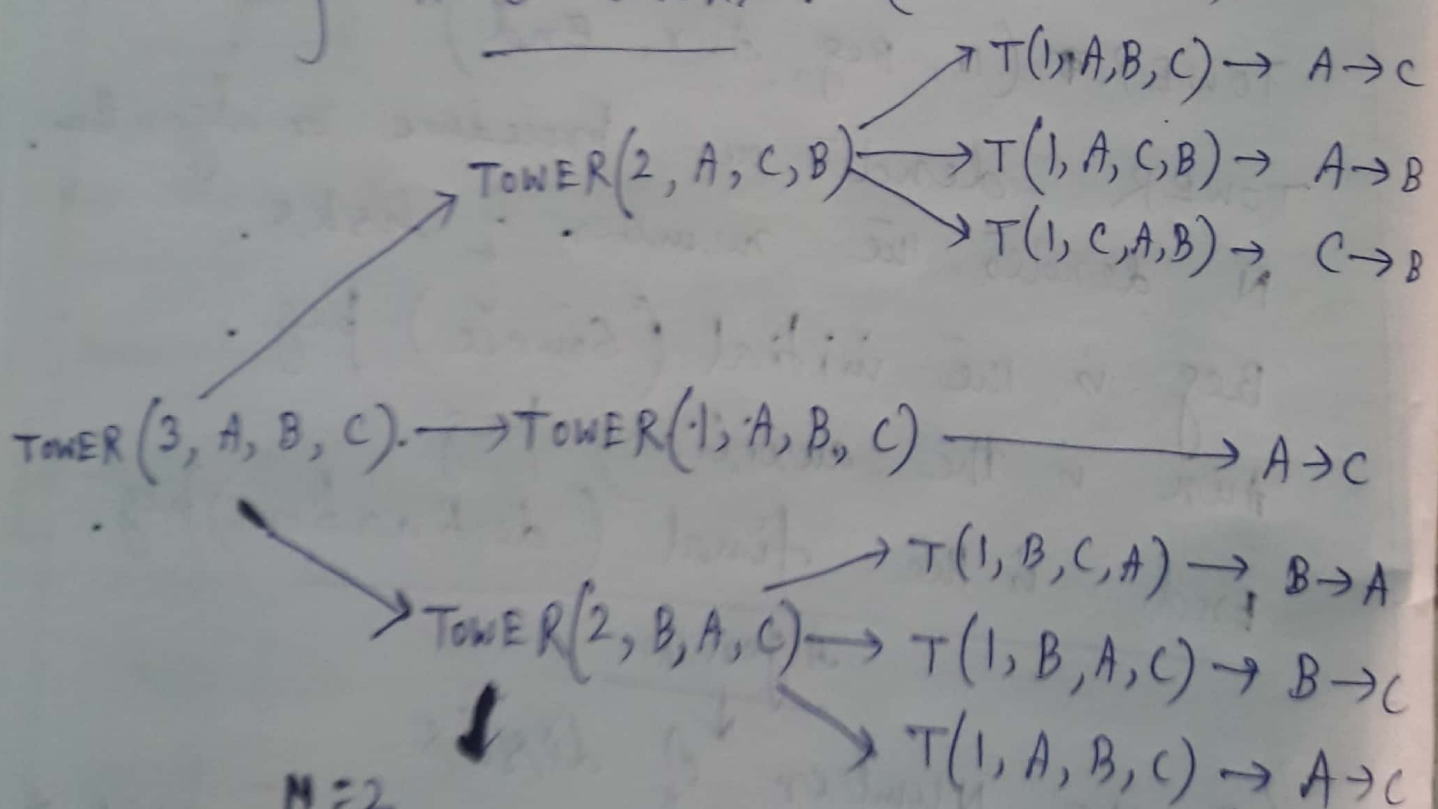 T(1, A, B, C) → A → C
TOWER(2, A, C, B) → T(1, A, C, B) → A → B
T(1, C, A, B) → C → B
TOWER(3, A, B, C). → TOWER(1, A, B, C) → A → C
T(1, B, C, A) → B → A
TOWER(2, B, A, C) → T(1, B, A, C) → B → C
T(1, A, B, C) → A → C
N = 2